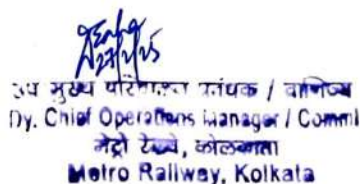 27/2/25
उप मुख्य परिचालन प्रबंधक / वाणिज्य
Dy. Chief Operations Manager / Comml
मेट्रो रेलवे, कोलकाता
Metro Railway, Kolkata